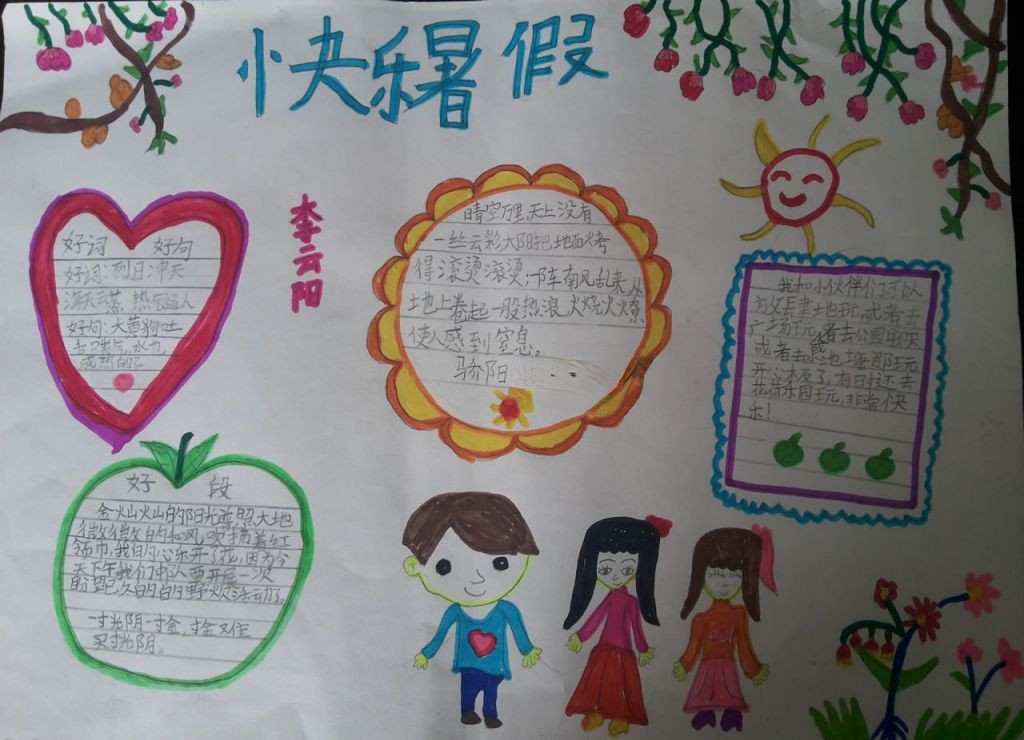 快乐暑假
李云阳
好词 好句
好词:烈日冲天
热气逼人
好句:大黄狗吐
舌喘气,水也
成热的。
晴空万里,天上没有
一丝云彩,太阳把地面烤
得滚烫滚烫;一阵南风乱来,从
地上卷起一股热浪,火烧火燎
使人感到窒息。
骄阳
我和小伙伴们可以
放丢聿地玩,或者去
广场玩,者去公园聊天
或者去池塘那玩
开心极了,有时还去
荷乐园玩,非常快
乐!
好 段
金灿灿的阳光普照大地
微微的和风吹拂着红
领巾,我的心乐开了花,因为今
天下午我们中队要开展一次
盼望已久的的野炊活动了。
一寸光阴一寸金,寸金又住
买寸光阴。